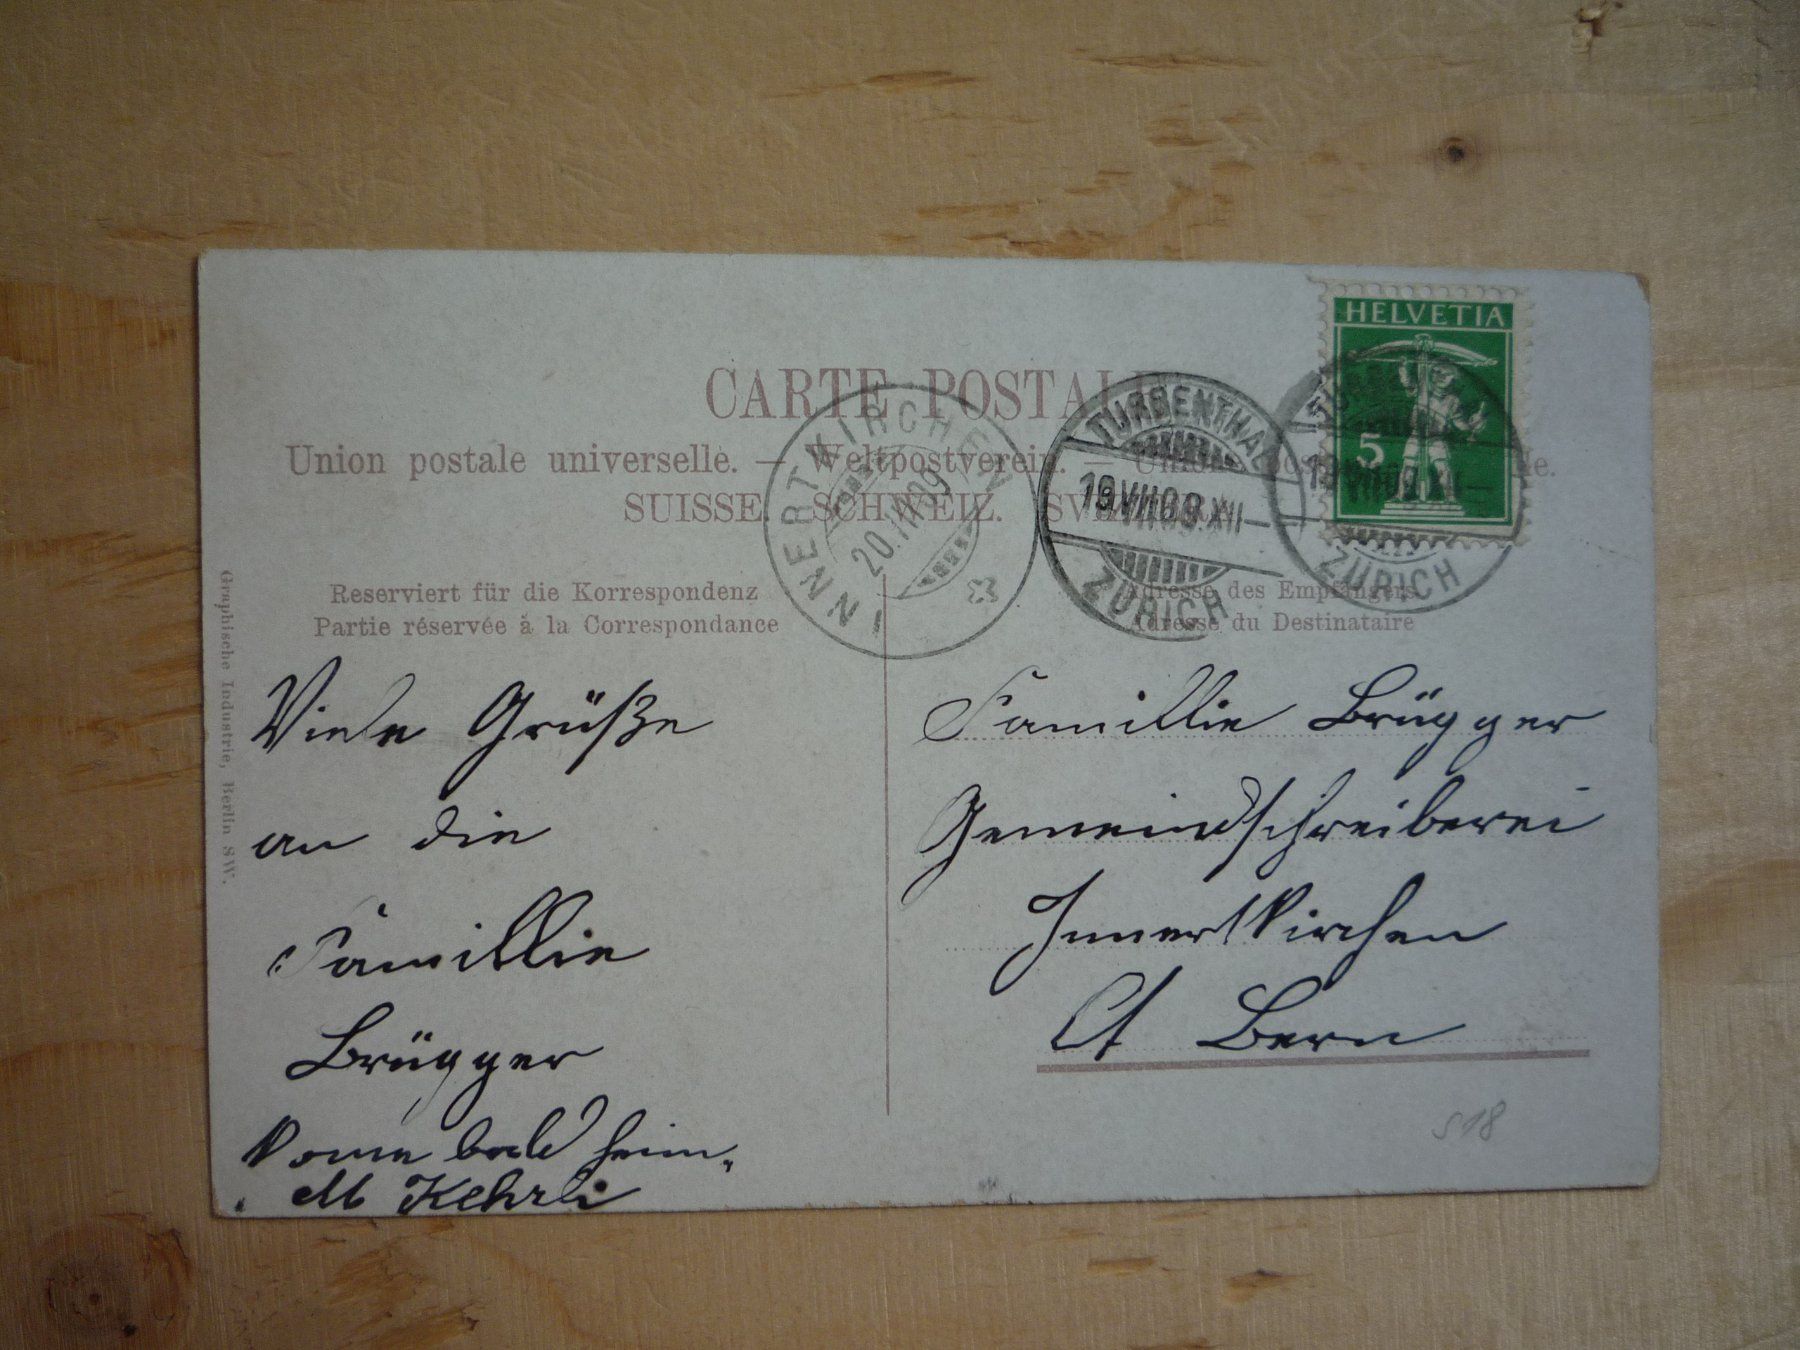 HELVETIA
5
CARTE POSTALE
Union postale universelle. — Weltpostverein. — Unione postale
SUISSE. SCHWEIZ. SVIZZERA.
INNERTKIRCHEN
20.VII.09
TURBENTHAL
19.VII.09.XII—
ZÜRICH
19.VII.09.XII—
ZÜRICH
Reserviert für die Korrespondenz
Partie réservée à la Correspondance
Adresse des Empfängers
Adresse du Destinataire
Graphische Industrie, Berlin SW.
Viele Grüße
an die
Famillie
Brügger
Kome bald heim.
M Kehrli
Famillie Brügger
Gemeindschreiberei
Innertkirchen
Ct Bern
S18